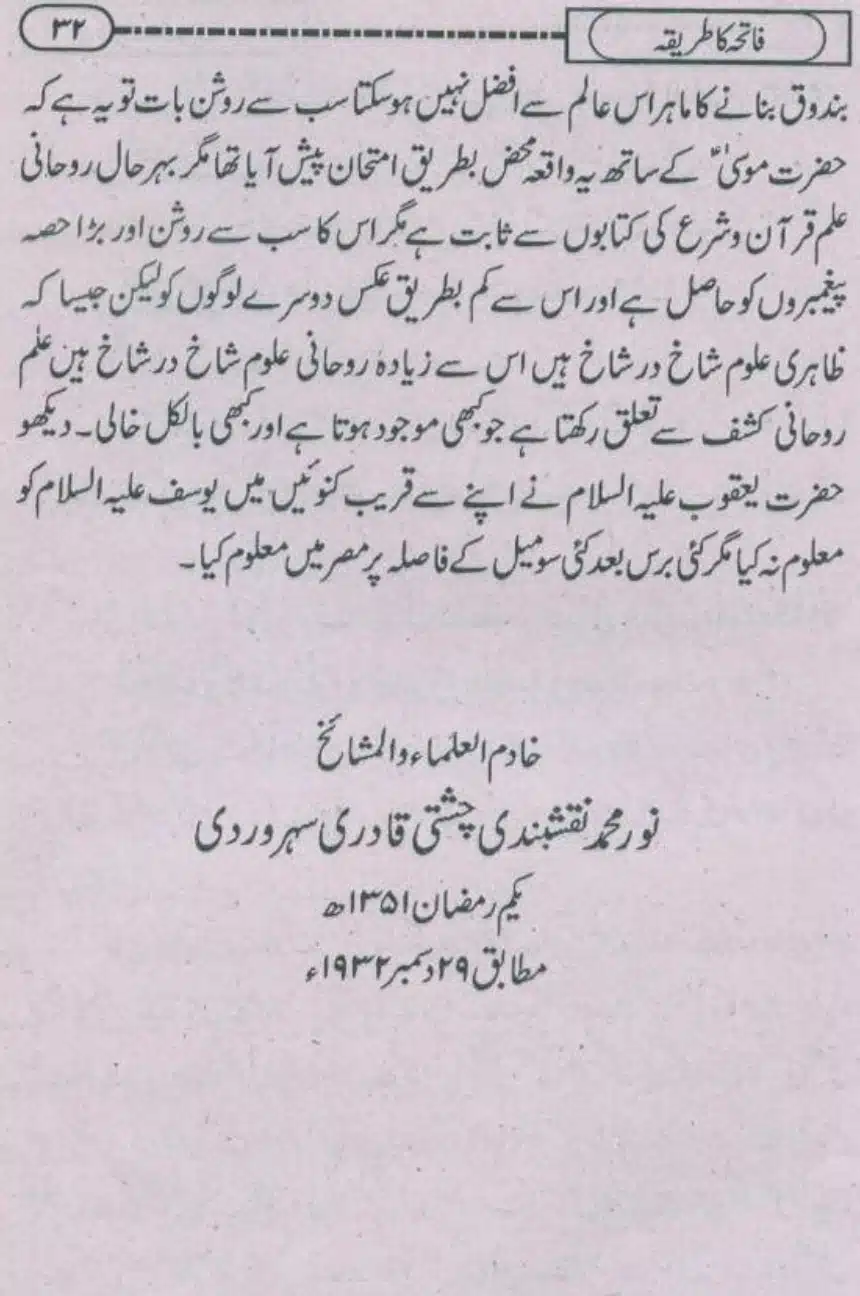 فاتحہ کا طریقہ
۳۲
بندوق بنانے کا ماہر اس عالم سے افضل نہیں ہوسکتا سب سے روشن بات تو یہ ہے کہ
حضرت موسیٰؑ کے ساتھ یہ واقعہ محض بطریق امتحان پیش آیا تھا مگر بہر حال روحانی
علم قرآن و شرع کی کتابوں سے ثابت ہے مگر اس کا سب سے روشن اور بڑا حصہ
پیغمبروں کو حاصل ہے اور اس سے کم بطریق عکس دوسرے لوگوں کو لیکن جیسا کہ
ظاہری علوم شاخ در شاخ ہیں اس سے زیادہ روحانی علوم شاخ در شاخ ہیں علم
روحانی کشف سے تعلق رکھتا ہے جو کبھی موجود ہوتا ہے اور کبھی بالکل خالی۔ دیکھو
حضرت یعقوب علیہ السلام نے اپنے سے قریب کنوئیں میں یوسف علیہ السلام کو
معلوم نہ کیا مگر کئی برس بعد کئی سو میل کے فاصلہ پر مصر میں معلوم کیا۔
خادم العلماء والمشائخ
نور محمد نقشبندی چشتی قادری سہروردی
یکم رمضان ۱۳۵۱ھ
مطابق ۲۹ دسمبر ۱۹۳۲ء